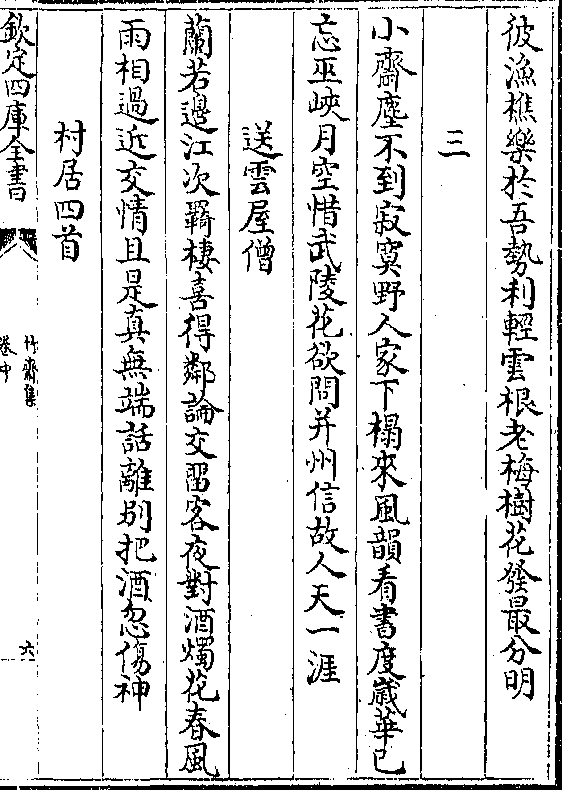 彼漁樵樂於吾勢利輕雲根老梅樹花發最分明
三
小齋塵不到寂寞野人家下榻來風韻看書度歲華已
忘巫峽月空惜武陵花欲問并州信故人天一涯
送雲屋僧
蘭若邊江次羇棲喜得鄰論交留客夜對酒燭花春風
雨相過近交情且是真無端話離別把酒忽傷神
村居四首
欽定四庫全書
竹齋集
卷中
六